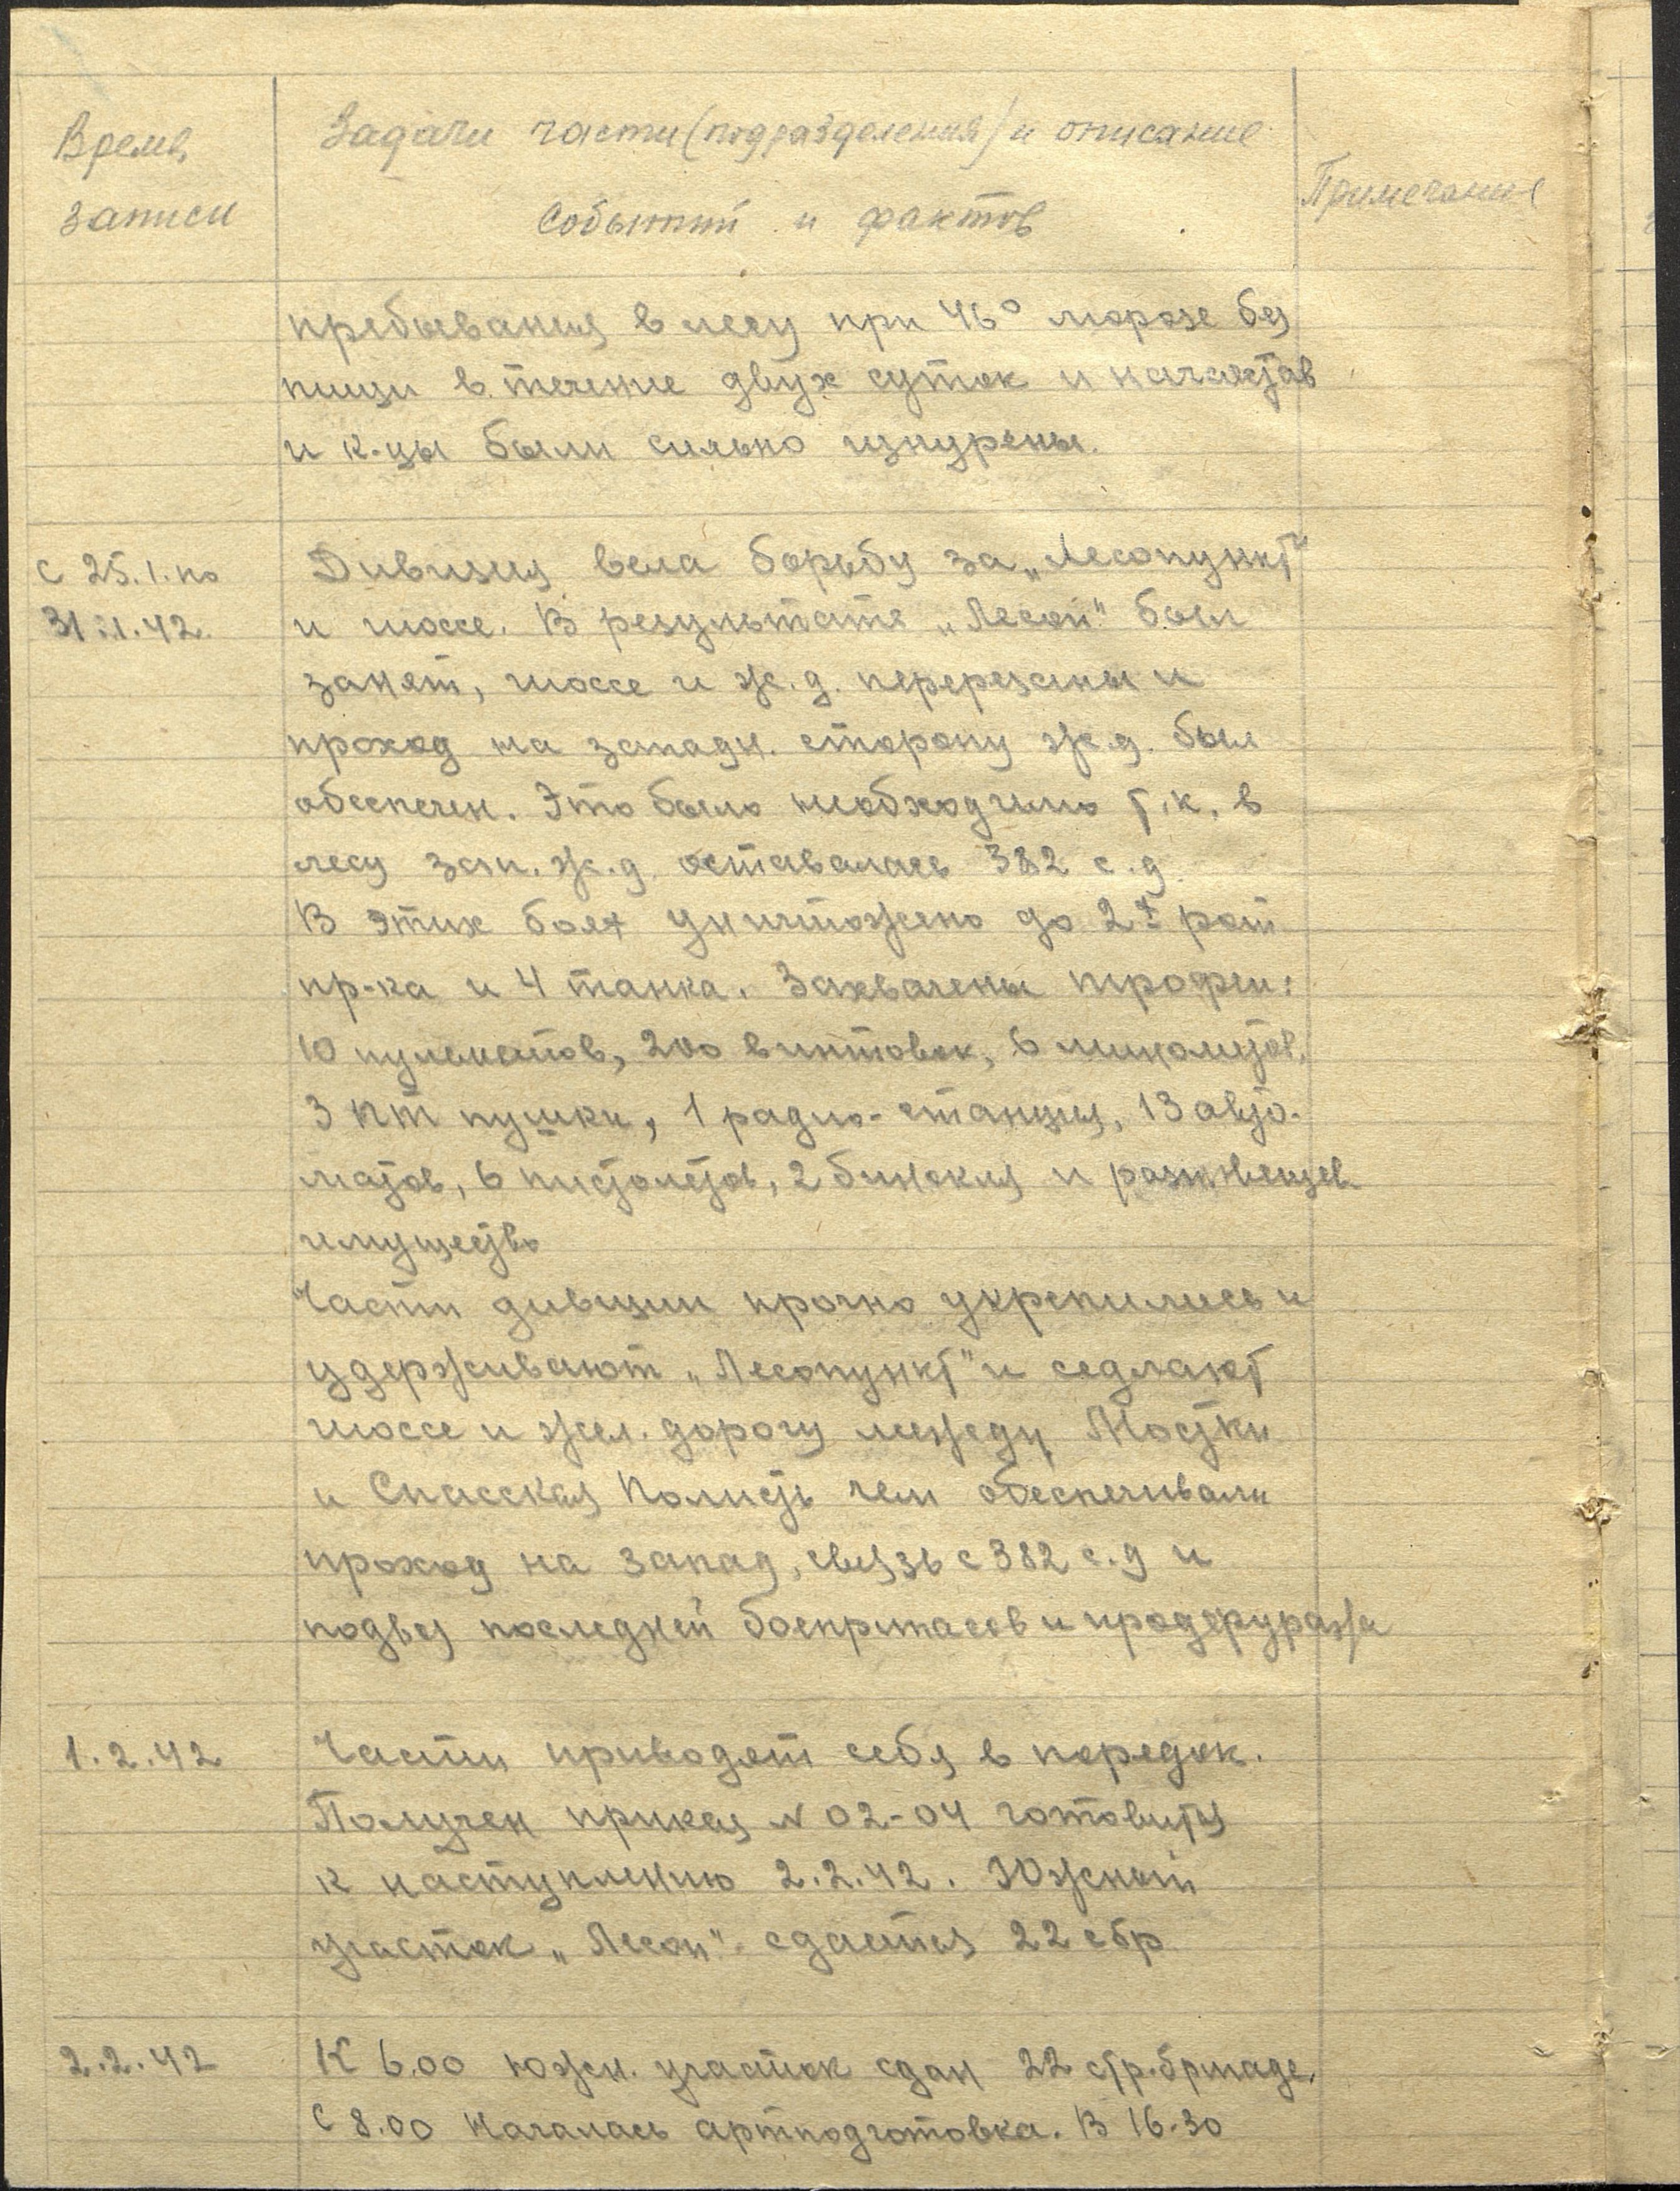 Время
записи
Задачи части (подразделения) и описание
событий и фактов
Примечание
пребывания в лесу при 46° морозе без
пищи в течение двух суток и начсостав
и к-цы были сильно изнурены.
с 25.1. по
31.1.42.
Дивизия вела борьбу за „Лесопункт"
и шоссе. В результате „Лесоп" был
занят, шоссе и ж.д. перерезаны и
проход на западн. сторону ж.д. был
обеспечен. Это было необходимо т.к. в
лесу зап. ж.д. оставалась 382 с.д.
В этих боях уничтожено до 2х рот
пр-ка и 4 танка. Захвачены трофеи:
10 пулеметов, 200 винтовок, 6 минометов,
3 ПТ пушки, 1 радио-станция, 13 авто-
матов, 6 пистолетов, 2 бинокля и
имущество
Части дивизии прочно укрепились и
удерживают „Лесопункт" и седлают
шоссе и жел. дорогу между Мостки
и Спасская Полисть чем обеспечивали
проход на запад, связь с 382 с.д и
подвоз последней боеприпасов и продфуража
1.2.42
Части приводят себя в порядок.
Получен приказ N 02-04 готовится
к наступлению 2.2.42. Южный
участок „Лесоп" сдается 22 сбр
2.2.42
К 6.00 южн. участок сдан 22 стр. бригаде.
С 8.00 началась артподготовка. В 16-30